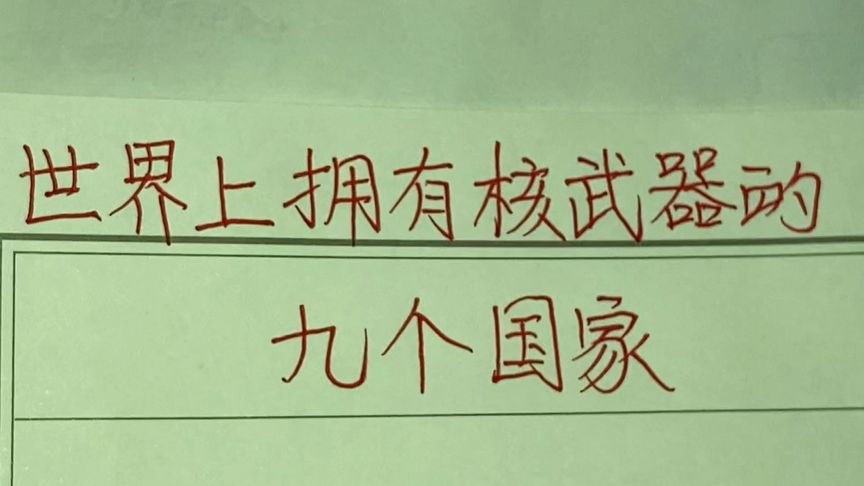 世界上拥有核武器的
九个国家